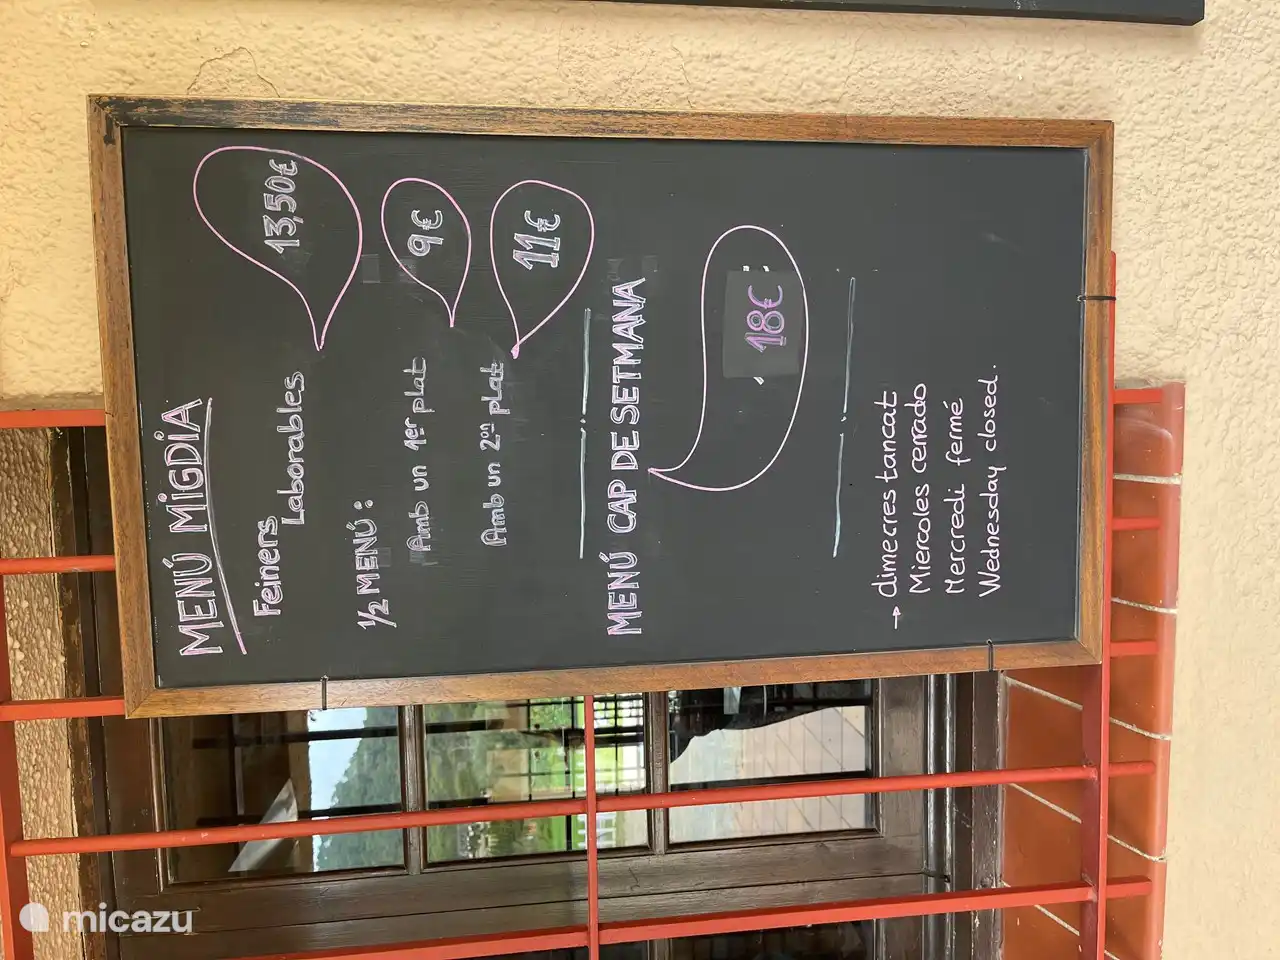 MENÚ MIGDIA
Feiners
Laborables
13,50€
1/2 MENÚ:
Amb un 1er plat
9€
Amb un 2on plat
11€
MENÚ CAP DE SETMANA
18€
→ dimecres tancat
Miercoles cerrado
Mercredi fermé
Wednesday closed.
micazu